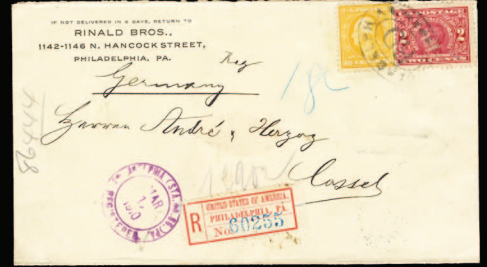 IF NOT DELIVERED IN 5 DAYS, RETURN TO
RINALD BROS.,
1142-1146 N. HANCOCK STREET,
PHILADELPHIA, PA.
Reg
Germany
18c
Herren André & Herzog
Cassel
86444
MAR
1910
R
UNITED STATES OF AMERICA.
PHILADELPHIA, PA.
No. 60255
POSTAGE
2 2
TWO CENTS